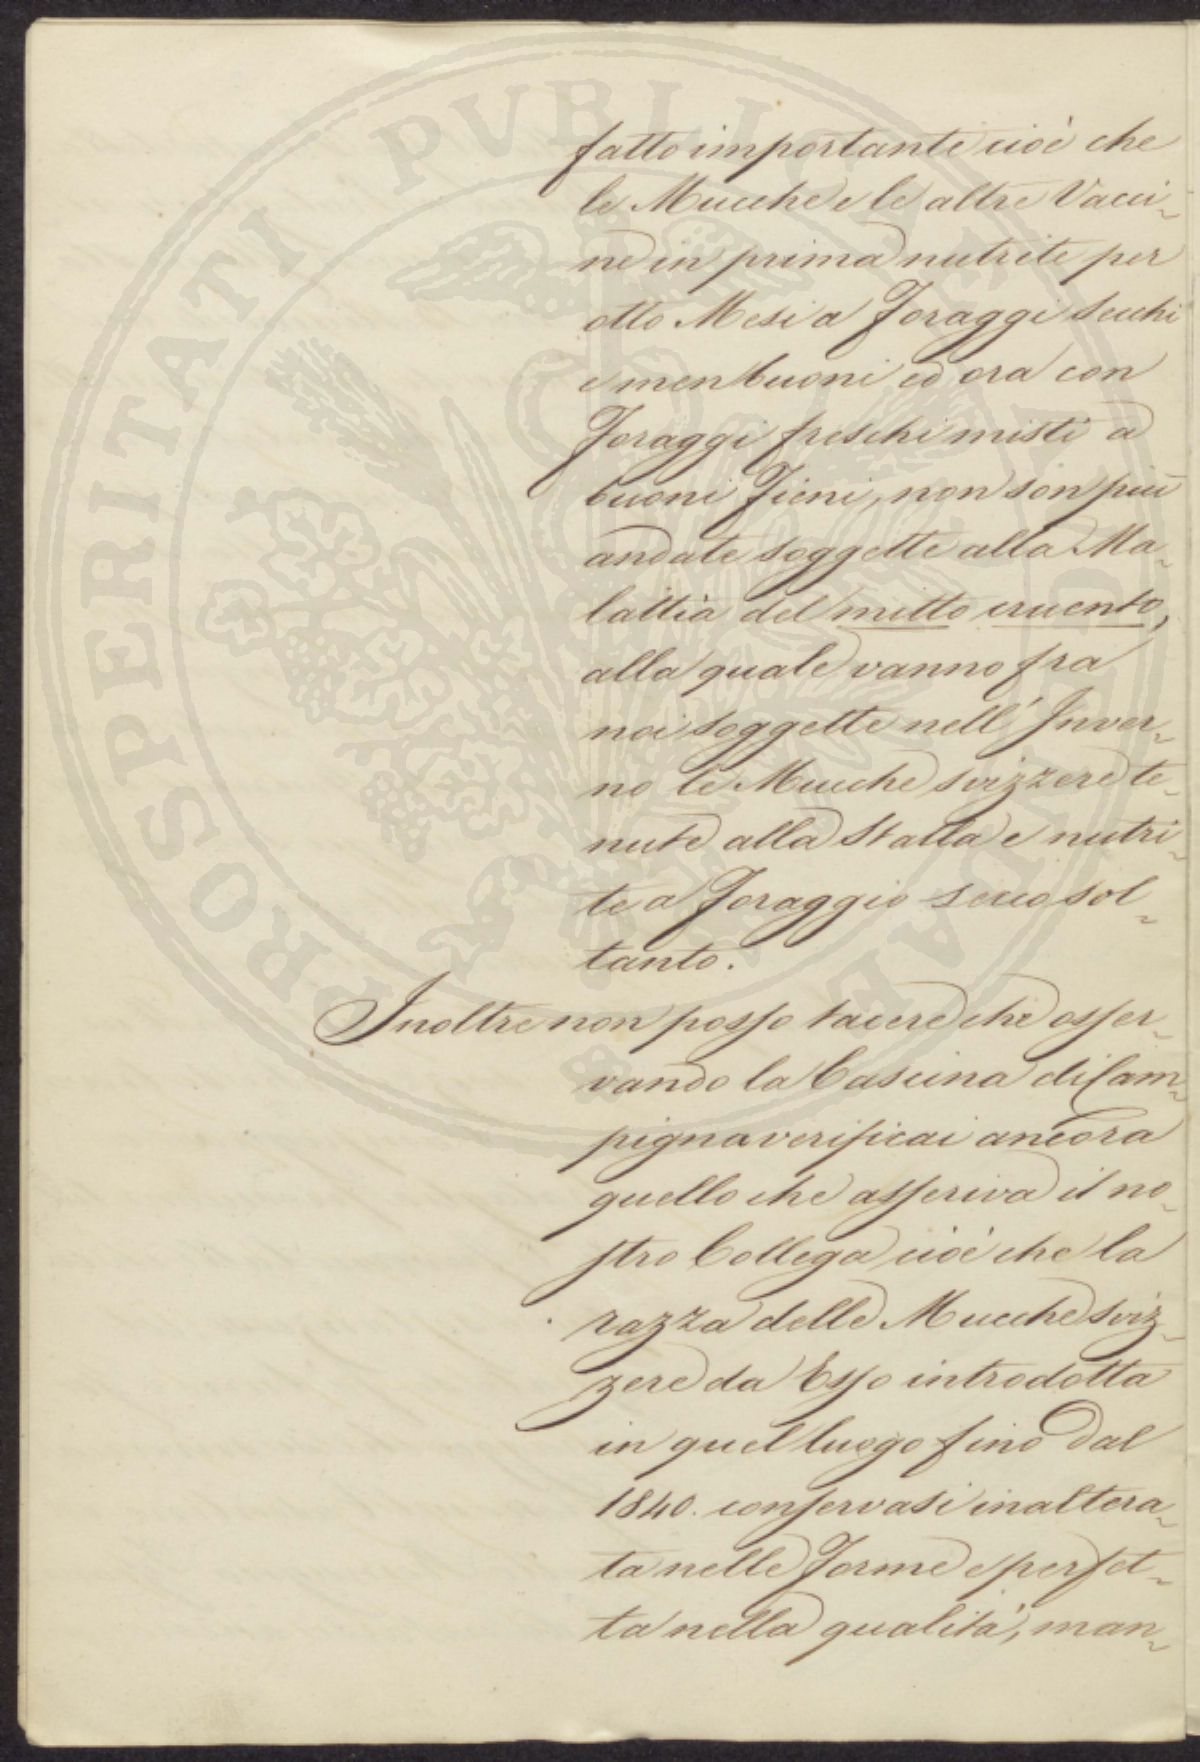 PROSPERITATI PVBLICAE AVGENDAE
fatto importante cioè che
le Mucche e le altre Vacci-
ne in prima nutrite per
otto Mesi a Foraggi secchi
e men buoni ed ora con
Foraggi freschi misti a
buoni Fieni, non son più
andate soggette alla Ma-
lattia del mitto cruento,
alla quale vanno fra
noi soggette nell'Inver-
no le Mucche svizzere te-
nute alla Stalla e nutri-
te a Foraggio secco sol-
tanto.
Inoltre non posso tacere che osser-
vando la Cascina di Cam-
pigna verificai ancora
quello che asseriva il no-
stro Collega cioè che la
razza delle Mucche sviz-
zere da Esso introdotta
in quel luogo fino dal
1840. conservasi inaltera-
ta nelle Forme e perfet-
ta nella qualità, man-